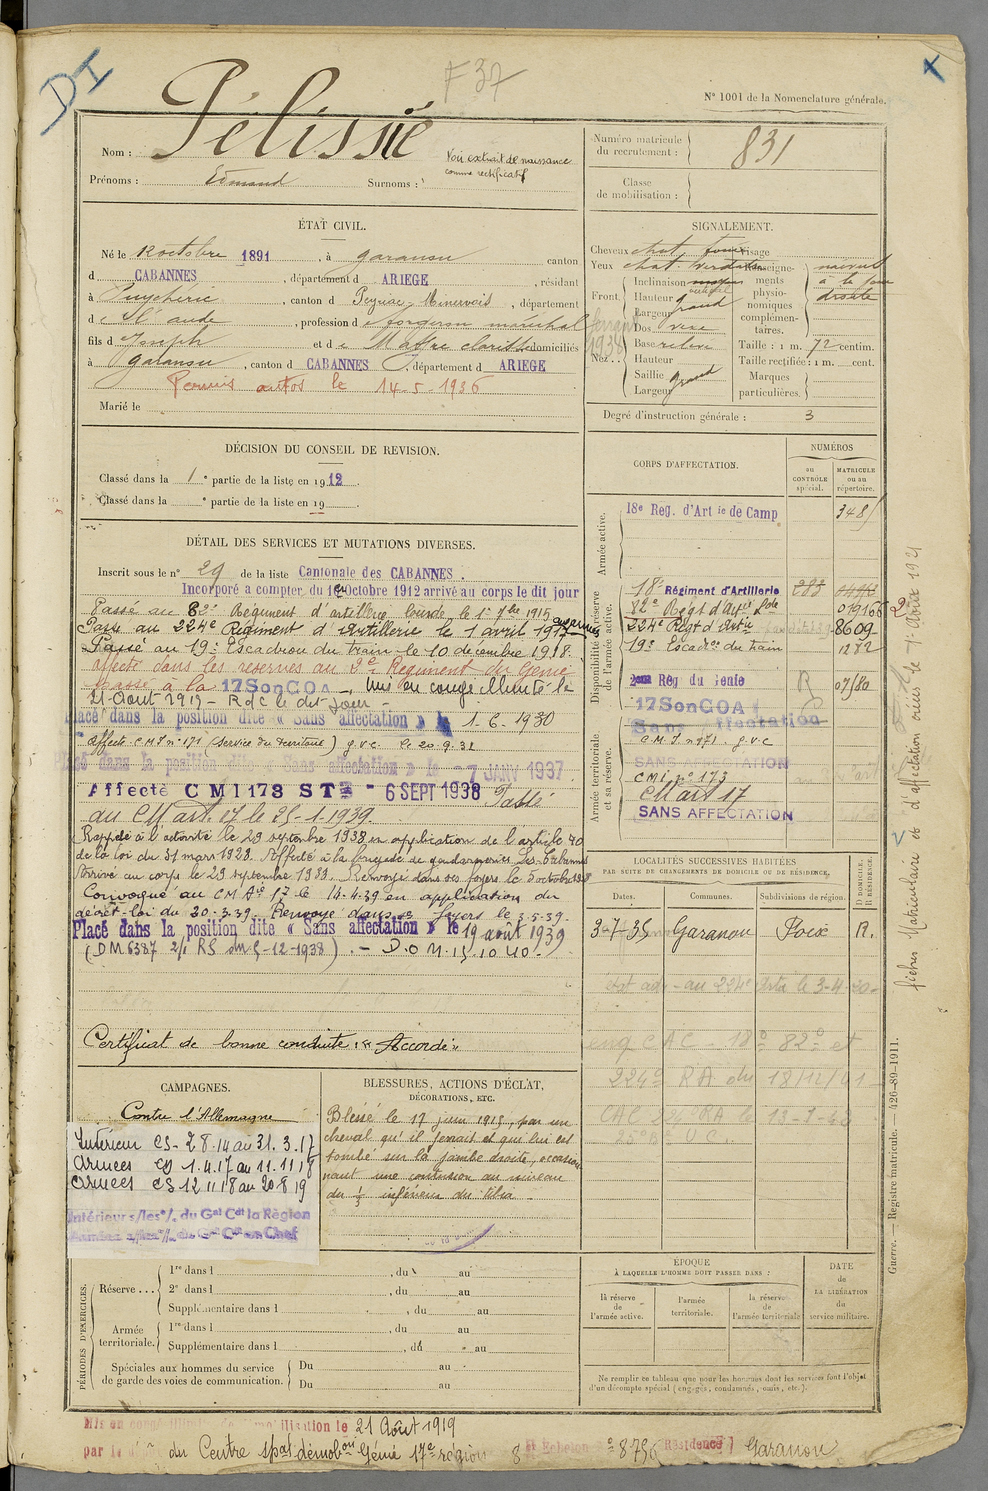 DI
F 37
N° 1001 de la Nomenclature générale.
Nom : Pélissié
Voir extrait de naissance
comme rectificatif
Prénoms : Edmond Surnoms :
Numéro matricule
du recrutement : 831
Classe
de mobilisation :
ÉTAT CIVIL.
Né le 12 octobre 1891, à garanou canton
d CABANNES, département d ARIEGE, résidant
à Puychéric, canton d Peyriac-Minervois, département
d el' aude, profession d forgeron maréchal ferrant
fils d Joseph et de Maffre clarisse domiciliés
à garanou, canton d CABANNES, département d ARIEGE
Permis autos le 14-5-1936
Marié le
SIGNALEMENT.
Cheveux chat Visage
Yeux chat
Renseigne-
ments
physio-
nomiques
complémen-
taires.
à la joue
droite
Front. Inclinaison
Hauteur
Largeur grand
Nez.. Dos
Base
Hauteur
Saillie grand
Largeur
Taille : 1 m. 72 centim.
Taille rectifiée : 1 m. cent.
Marques
particulières.
Degré d'instruction générale : 3
DÉCISION DU CONSEIL DE REVISION.
Classé dans la 1e partie de la liste en 1912.
Classé dans la e partie de la liste en 19
CORPS D'AFFECTATION.
NUMÉROS
au
CONTRÔLE
spécial.
MATRICULE
ou au
répertoire.
Armée active.
18e Reg. d'Artie de Camp 3481
Disponibilité et réserve
de l'armée active.
18e Régiment d'Artillerie 283
82e Régt d'artie Lde 019166
224e Régt d'Artie 8609
19e Escadon du train 1272
2eme Reg du Genie R 07580
17SonGOA
Sans affectation
Armée territoriale
et sa réserve.
C.M.I n° 171. g.v.c
SANS AFFECTATION
CMI n° 173
CM art 17
SANS AFFECTATION
DÉTAIL DES SERVICES ET MUTATIONS DIVERSES.
Inscrit sous le n° 29 de la liste Cantonale des CABANNES.
Incorporé a compter du Octobre 1912 arrivé au corps le dit jour
Passé au 82e Régiment d'artillerie lourde le 1er 7bre 1915
Passé au 224e Régiment d'Artillerie le 1 avril 1917
Passé au 19e Escadron du train le 10 décembre 1918.
affecté dans les réserves au 2e Régiment du Genie
passé à la 17SonGOA. Mis en congé illimité le
21 Août 1919 - RdC le dit jour -
Placé dans la position dite « Sans affectation » le 1.6.1930
affecté C.M.I n° 171 (Service du territoire) g.v.c. le 20.9.32
Placé dans la position dite « Sans affectation » le -7 JANV 1937
Affecté CMI 173 STre - 6 SEPT 1938 Passé
au CM art. 17 le 25-1-1939
Rappelé à l'activité le 29 septembre 1938 en application de l'article 40
de la loi du 31 mars 1928. Affecté à la brigade de gendarmerie Les Cabannes
Arrivé au corps le 29 septembre 1938. Renvoyé dans ses foyers le 5 octobre 1938
Convoqué au CM Aie 17 le 14-4-39 en application du
décret-loi du 20-3-39. Renvoyé dans ses foyers le 3-5-39-
Placé dans la position dite « Sans affectation » le 19 août 1939
(DM 6387 2/1 RS du 5-12-1938). - D.O.M.
Certificat de bonne conduite : « Accordé »
LOCALITÉS SUCCESSIVES HABITÉES
PAR SUITE DE CHANGEMENTS DE DOMICILE OU DE RÉSIDENCE.
Dates. Communes. Subdivisions de région. D DOMICILE, R RÉSIDENCE.
3-7-35 Garanou Foix R.
au 224e
CAC - 18e 82e et
224e RA du 18/12/41
CAMPAGNES.
Contre l'Allemagne
Intérieur CS- 2 8.14 au 31.3.17
Armées CD 1.4.17 au 11.11.18
Armées CS 12 11 18 au 20 8 19
Intérieur s/les °/. du Gal Cdt la Région
Armées s/les °/. du Gal Cdt en Chef
BLESSURES, ACTIONS D'ÉCLAT,
DÉCORATIONS, ETC.
Blessé le 17 juin 1915, par un
cheval qu'il ferrait et qui lui est
tombé sur la jambe droite, occasion-
nant une contusion au niveau
du ⅓ inférieur du tibia.
PÉRIODES D'EXERCICES.
Réserve... 1re dans l , du au
2e dans l , du au
Supplémentaire dans l , du au
Armée
territoriale. 1re dans l , du au
Supplémentaire dans l , du au
Spéciales aux hommes du service
de garde des voies de communication. Du au
Du au
ÉPOQUE
À LAQUELLE L'HOMME DOIT PASSER DANS :
la réserve
de
l'armée active.
l'armée
territoriale.
la réserve
de
l'armée territoriale
DATE
de
LA LIBÉRATION
du
service militaire.
Ne remplir ce tableau que pour les hommes dont les services font l'objet
d'un décompte spécial (engagés, condamnés, omis, etc.).
Guerre. — Registre matricule. — 426-89-1911.
Mis en congé illimité de démobilisation le 21 Août 1919
par le du Centre spal démobon Génie 17e région 8e Echelon n° 8756 Résidence Garanou